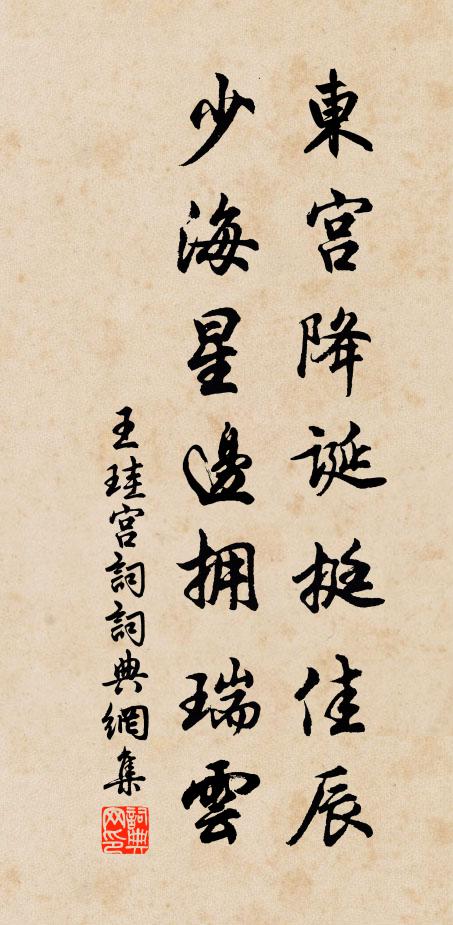 東宮降誕挺佳辰
少海星邊擁瑞雲
王珪宮詞詞典網集
詞典网印